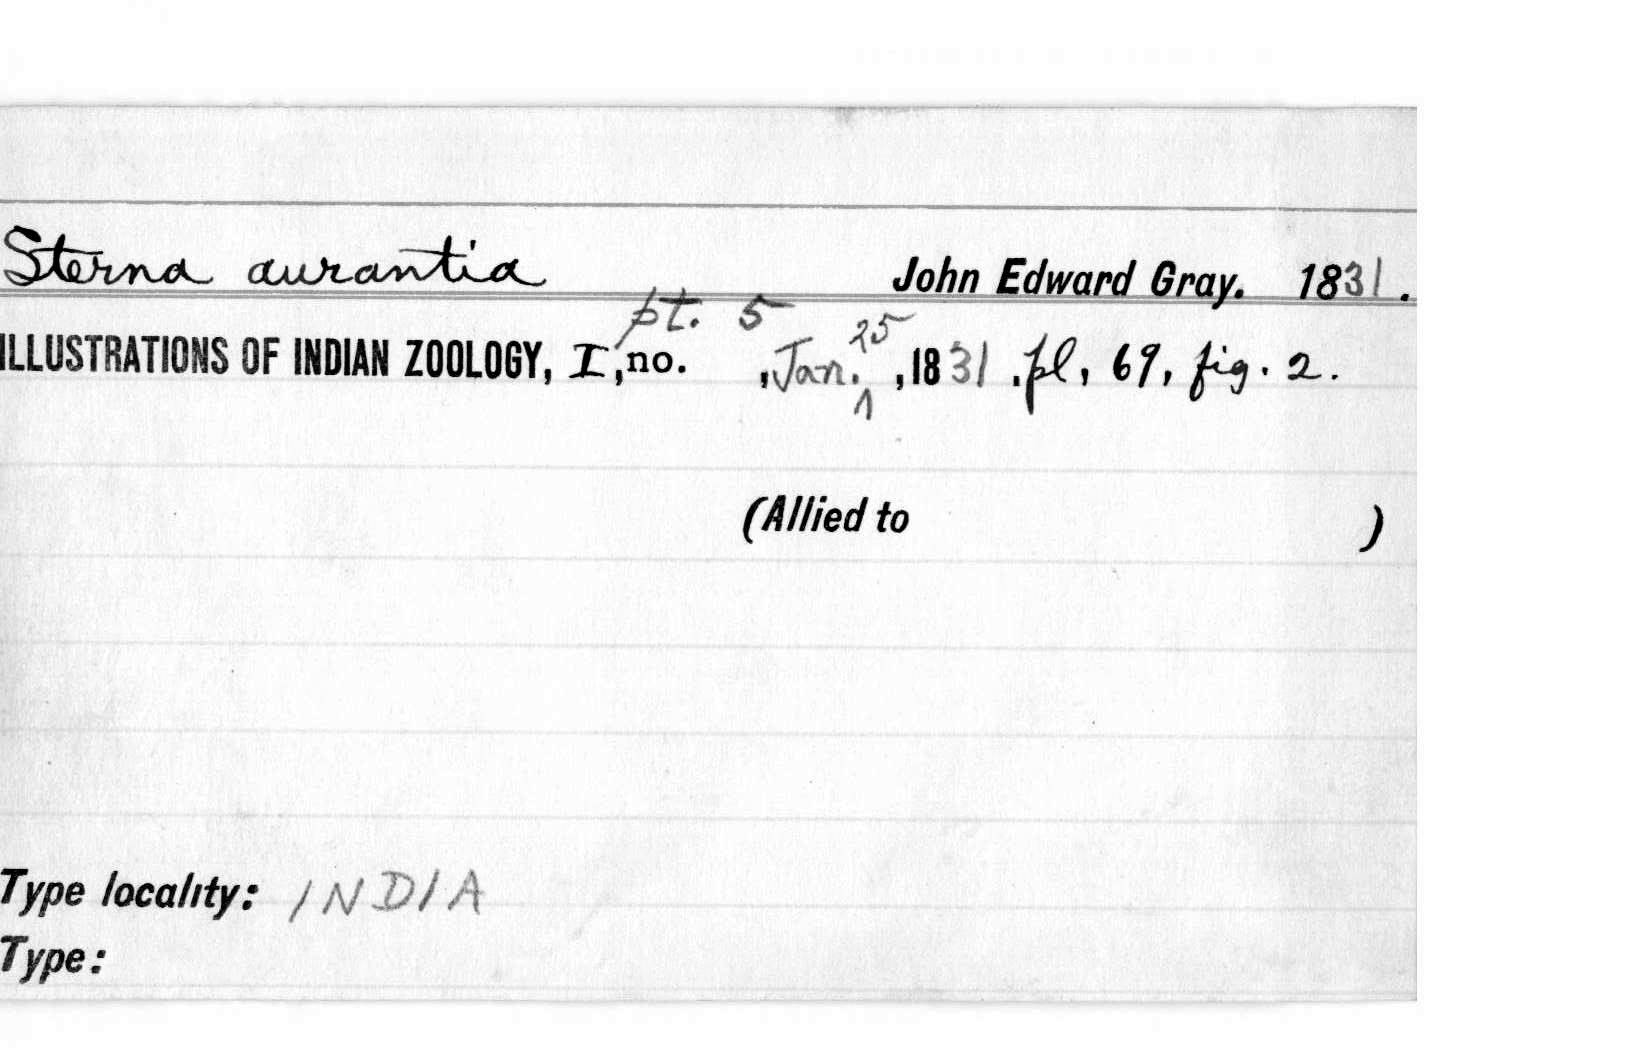 Sterna aurantia John Edward Gray. 1831.
pt. 5
ILLUSTRATIONS OF INDIAN ZOOLOGY, I, no. , Jan. 25, 1831. pl, 69, fig. 2.
(Allied to )
Type locality: INDIA
Type: